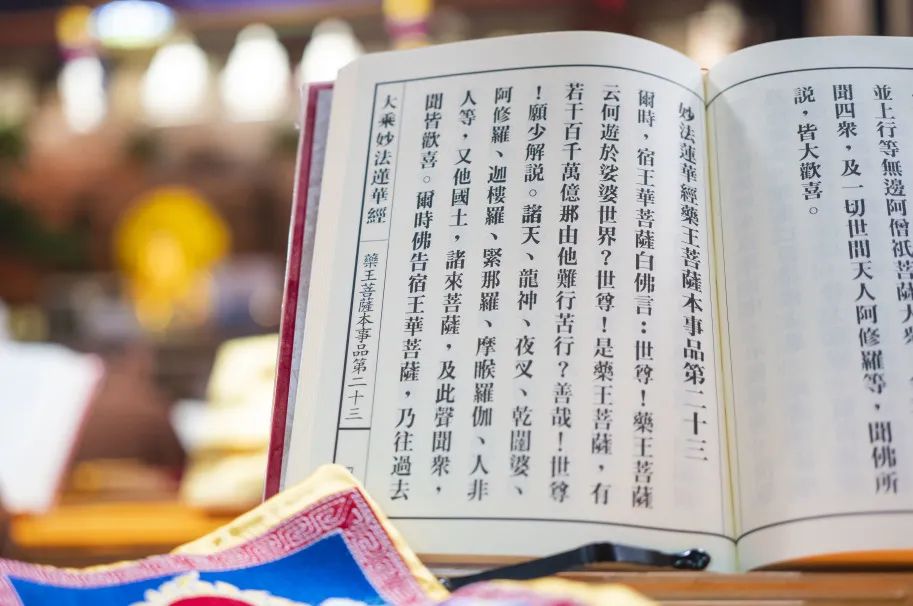 並上行等無邊阿僧祇菩薩大眾
聞四眾，及一切世間天人阿修羅等，聞佛所
説，皆大歡喜。
妙法蓮華經藥王菩薩本事品第二十三
爾時，宿王華菩薩白佛言：世尊！藥王菩薩
云何遊於娑婆世界？世尊！是藥王菩薩，有
若干百千萬億那由他難行苦行？善哉！世尊
！願少解説。諸天、龍神、夜叉、乾闥婆、
阿修羅、迦樓羅、緊那羅、摩睺羅伽、人非
人等，又他國土，諸來菩薩，及此聲聞眾，
聞皆歡喜。爾時佛告宿王華菩薩，乃往過去
大乘妙法蓮華經
藥王菩薩本事品第二十三